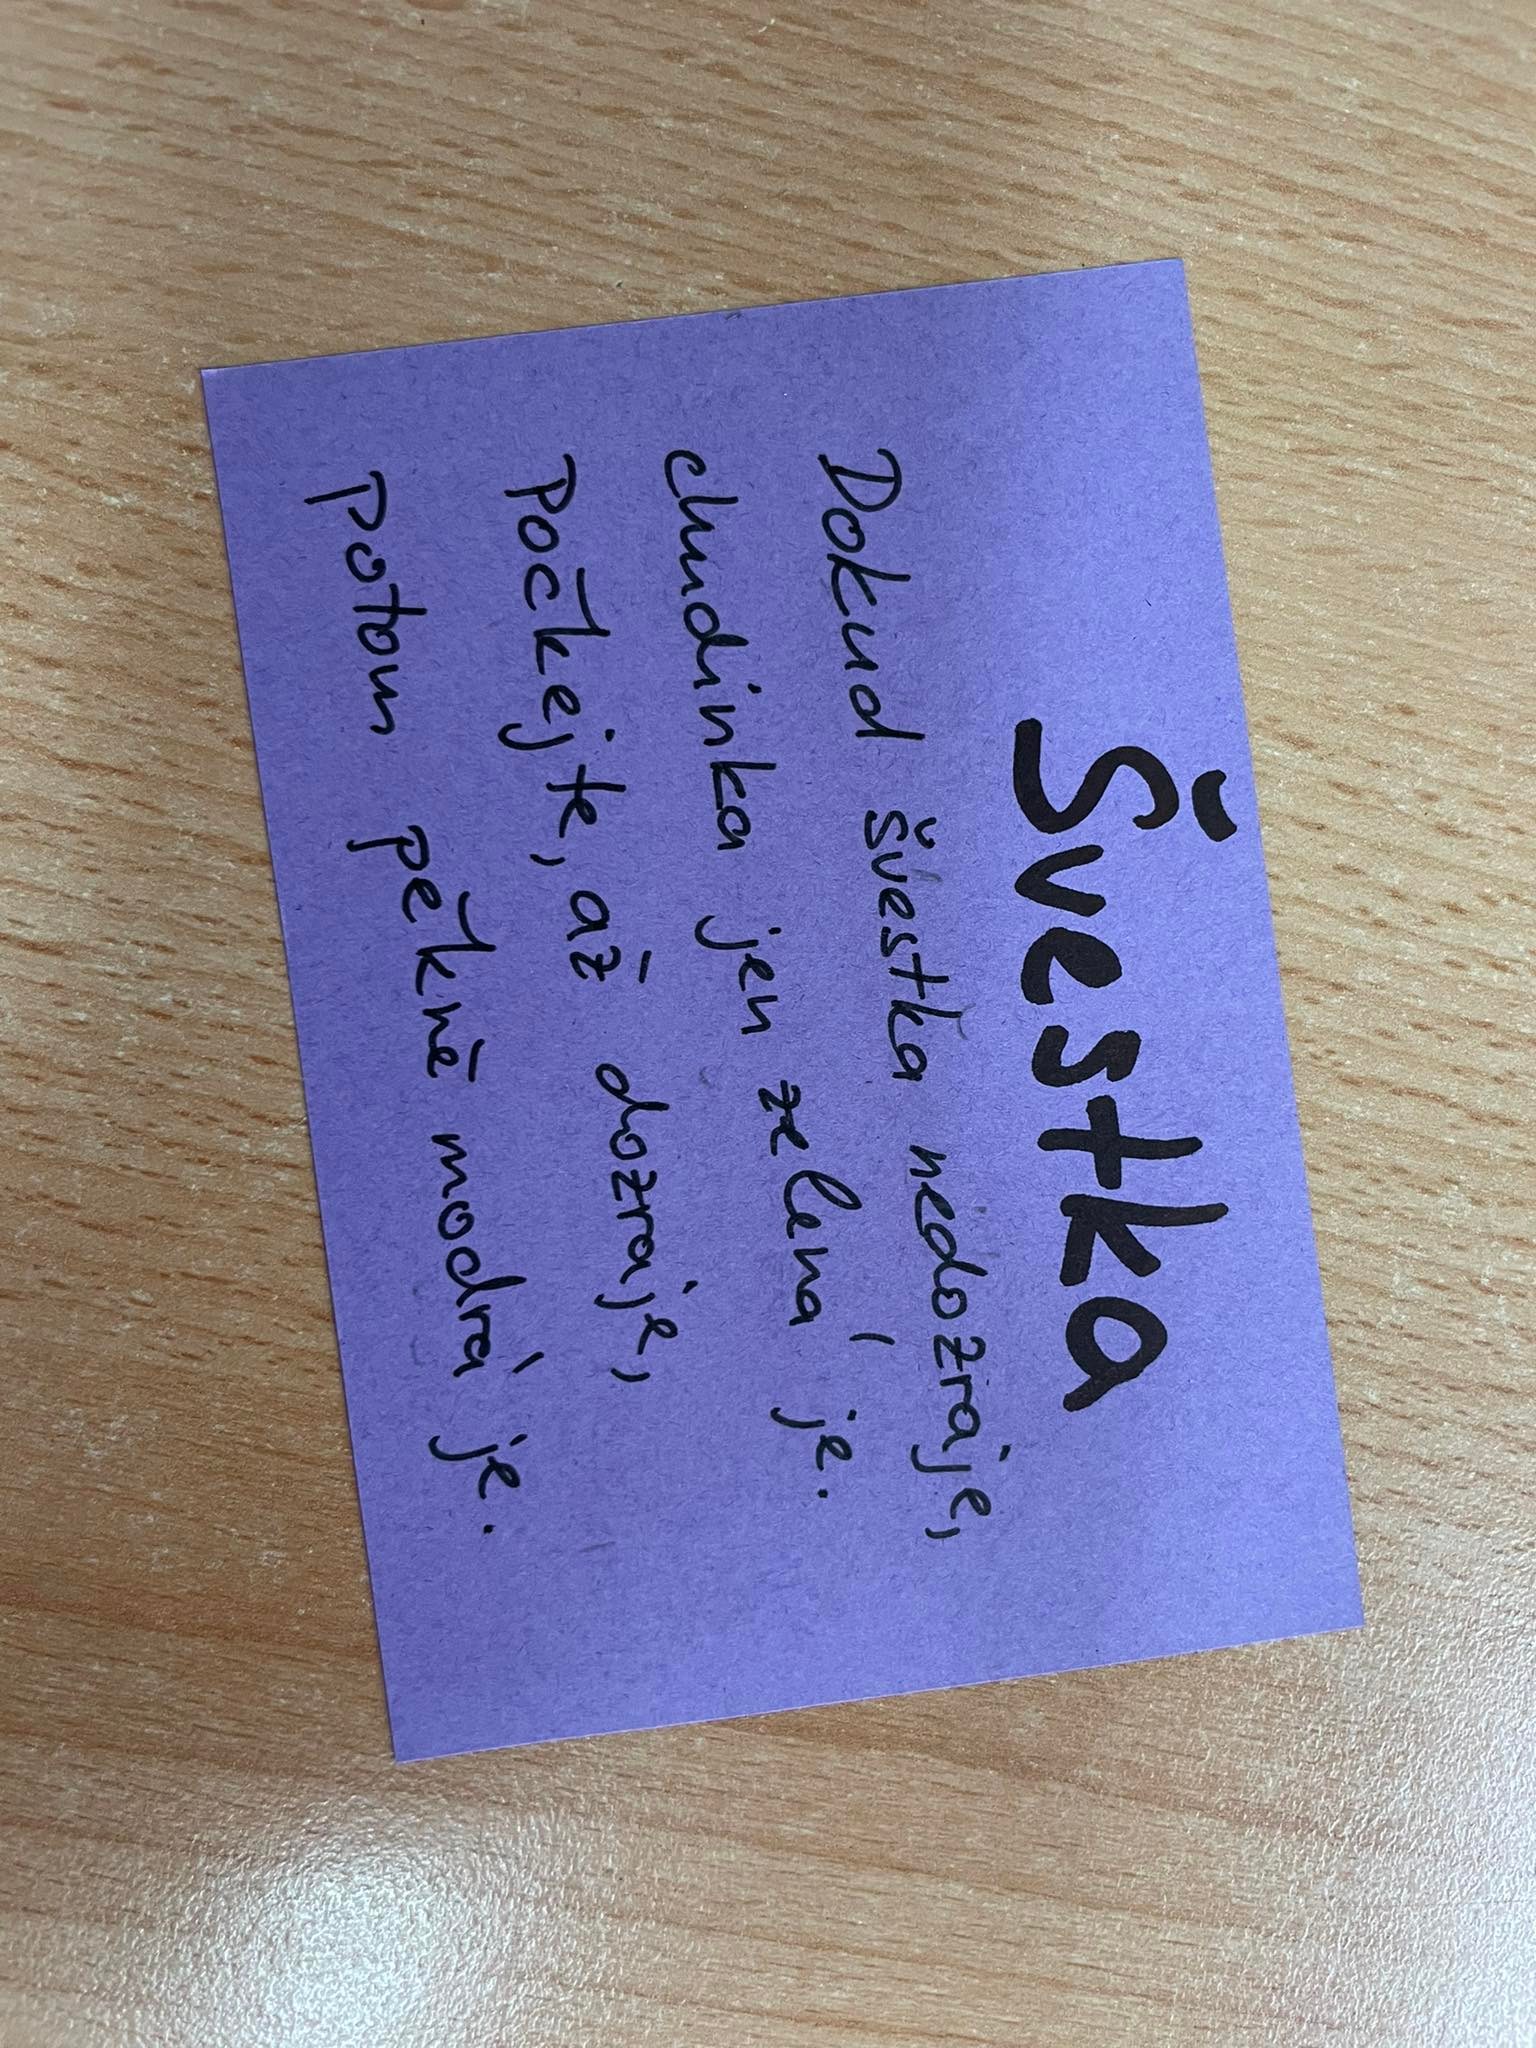 Švestka
Dokud švestka nedozraje,
chudinka jen zelená je.
Počkejte, až dozraje,
potom pěkně modrá je.